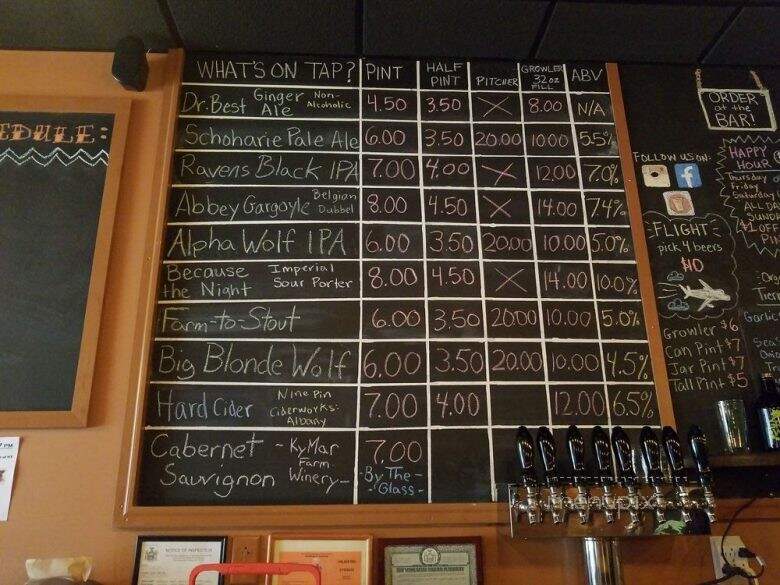 EDULE:
WHAT'S ON TAP? PINT HALF PINT PITCHER GROWLER 32oz FILL ABV
Dr. Best Ginger Ale Non-Alcoholic 4.50 3.50 X 8.00 N/A
Schoharie Pale Ale 6.00 3.50 20.00 10.00 5.5%
Ravens Black IPA 7.00 4.00 X 12.00 7.0%
Abbey Gargoyle Belgian Dubbel 8.00 4.50 X 14.00 7.4%
Alpha Wolf IPA 6.00 3.50 20.00 10.00 5.0%
Because the Night Imperial Sour Porter 8.00 4.50 X 14.00 10.0%
Farm-to-Stout 6.00 3.50 20.00 10.00 5.0%
Big Blonde Wolf 6.00 3.50 20.00 10.00 4.5%
Hard Cider Nine Pin Ciderworks: Albany 7.00 4.00 12.00 6.5%
Cabernet Sauvignon - KyMar Farm Winery - 7.00 - By The Glass -
ORDER
at the
BAR!
FOLLOW US ON:
HAPPY
HOUR
Thursday
Friday
Saturday
ALL DA
SUND
$1 OFF
FLIGHT
pick 4 beers
$10
Growler $6
Can Pint $7
Jar Pint $7
Tall Pint $5
Garlic
NOTICE OF INSPECTION